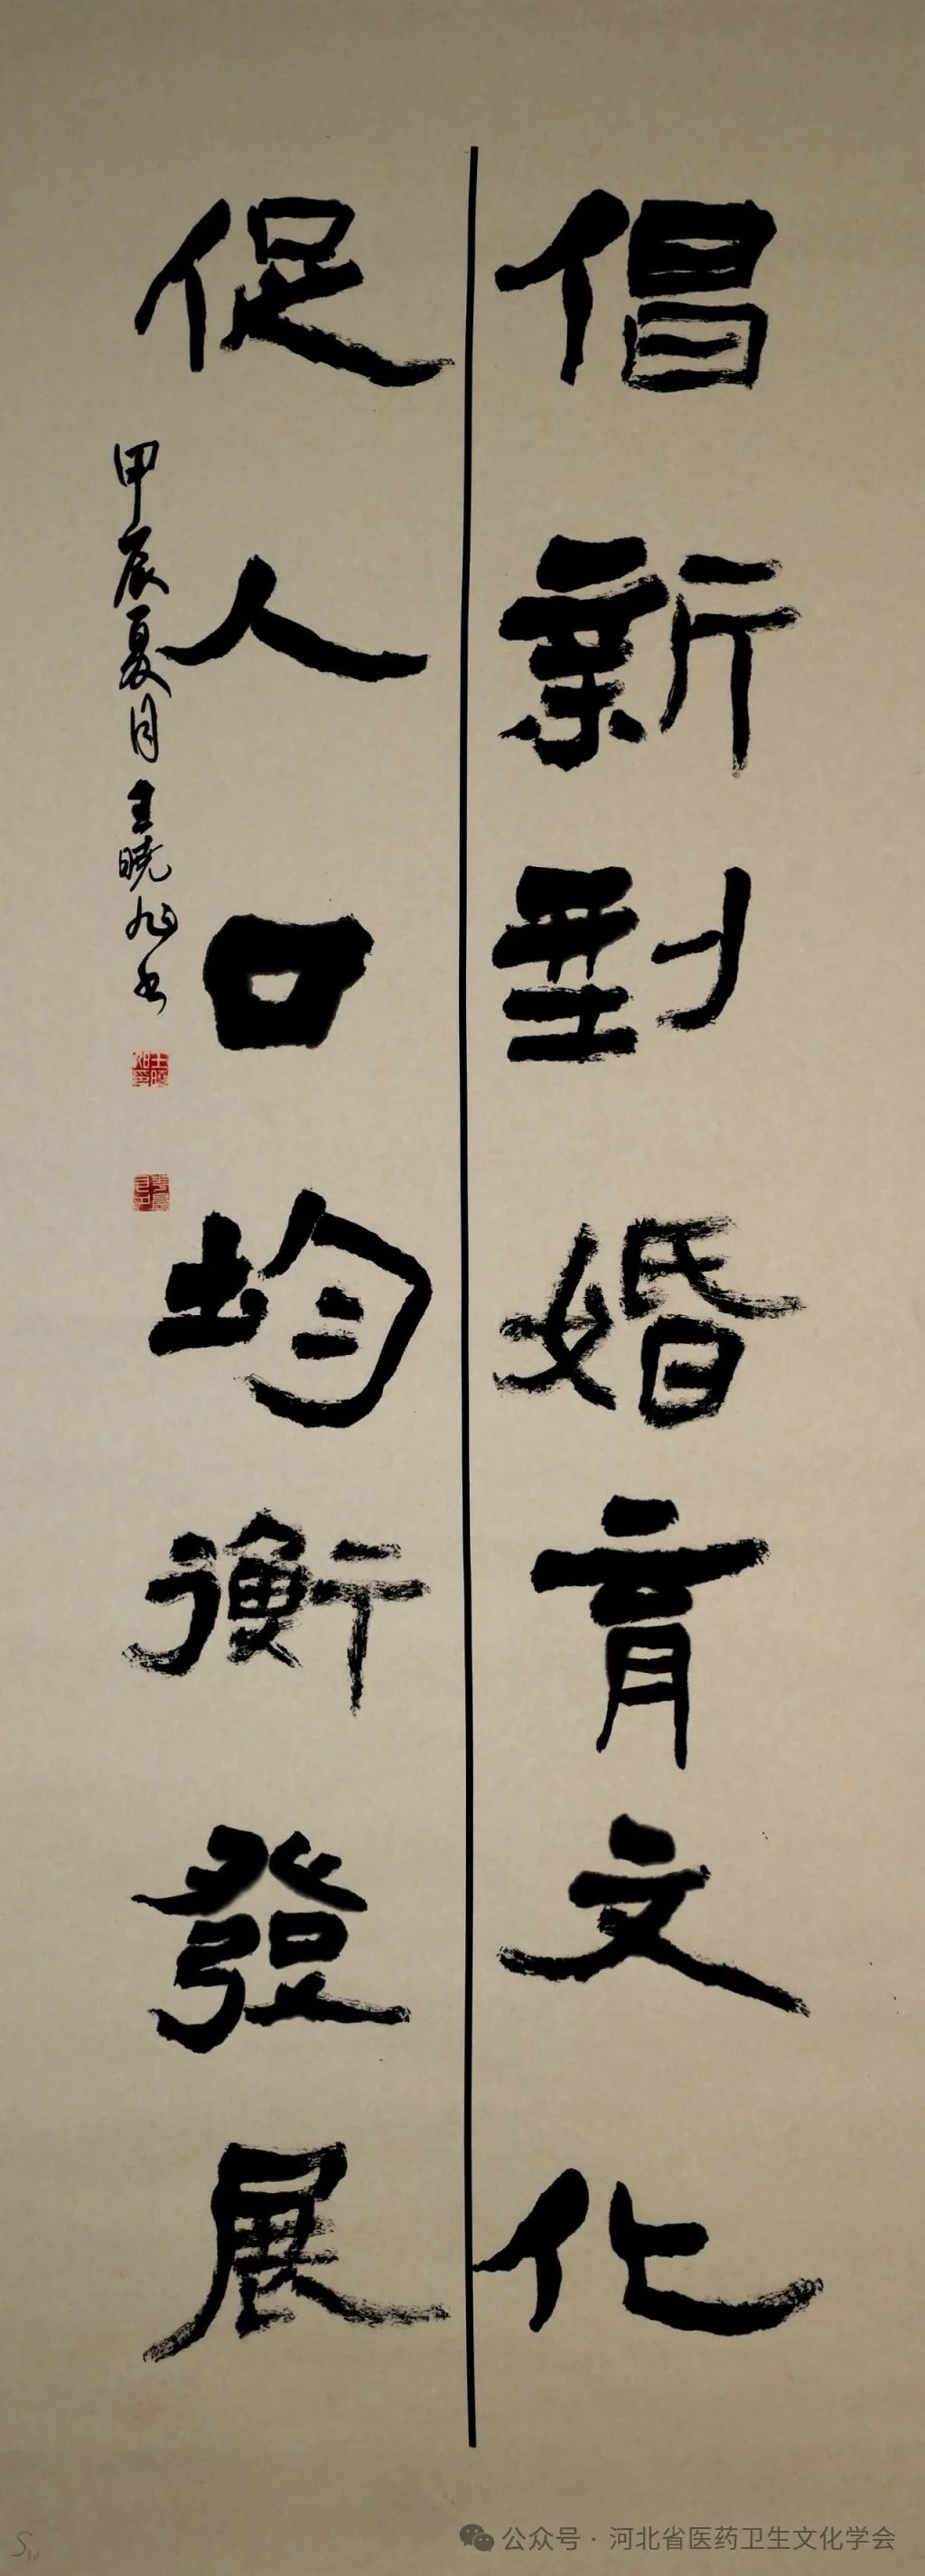 倡新型婚育文化
促人口均衡發展
甲辰夏月王曉旭书
公众号·河北省医药卫生文化学会